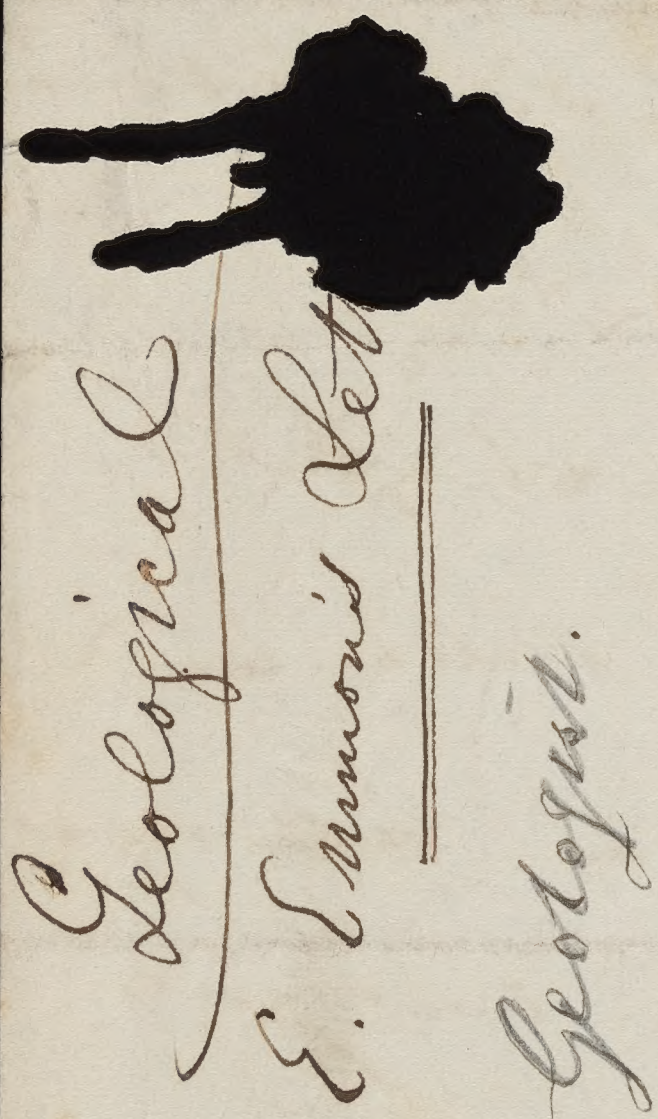 Geological
E. Emmons Let
Geologist.